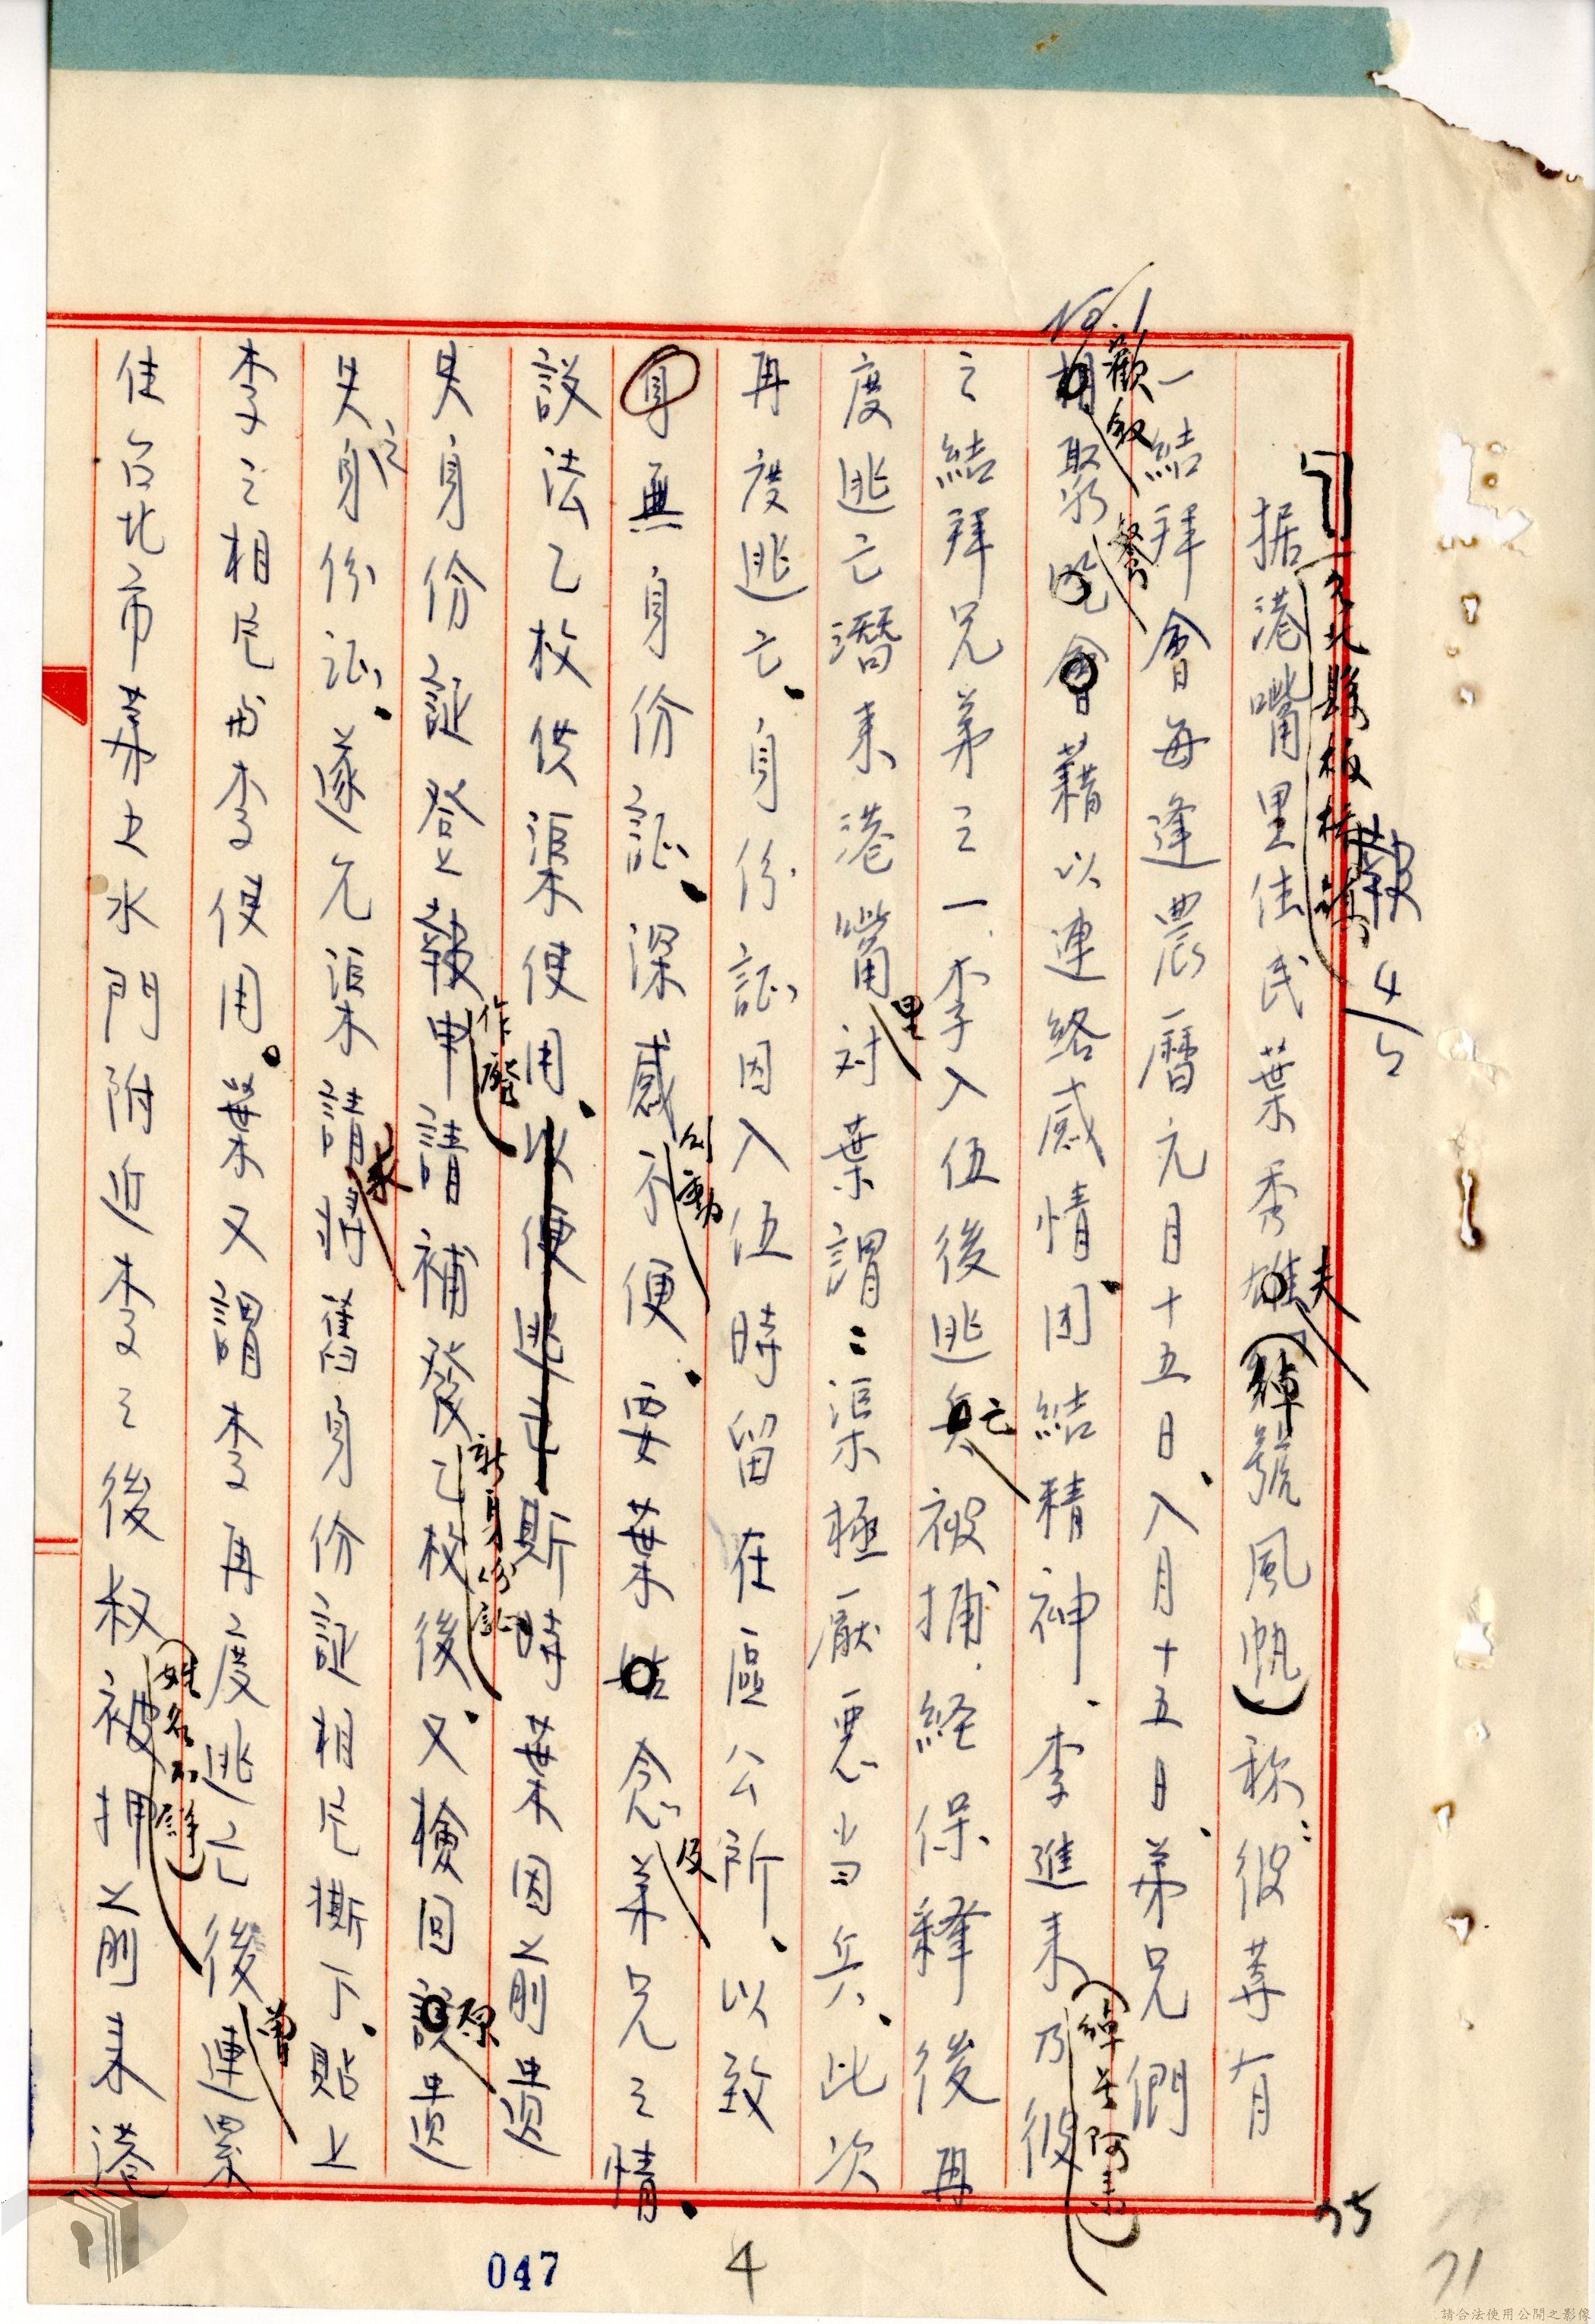 報 4/5
台北縣板橋鎮
据港嘴里住民葉秀雄夫(綽號風帆)称:彼等有
一結拜會每逢農曆元月十五日、八月十五日、弟兄們
相聚吃會藉以連絡感情、团結精神、李進来乃彼
歡敘 聚餐
(綽号阿来)
之結拜兄弟之一、李入伍後逃兵被捕、経保释後再
亡
度逃亡潛来港嘴对葉謂:渠極厭惡当兵、此次
里
再度逃亡、身份証因入伍時留在區公所、以致
身無身份証、深感不便、要葉姑念弟兄之情、
行動
及
設法乙枚供渠使用、以便逃亡斯時葉因前遺
失身份証登報申請補發乙枚後、又檢回該遺
作廢
新身份証
原
失之身份证、遂允渠請將舊身份証相片撕下、貼上
求
李之相片由李使用。葉又謂李再度逃亡後連累
曾
住台北市第七水門附近李之後叔被押、前来港
(姓名不詳)
No.1
75
71
4
047
請合法使用公開之影像